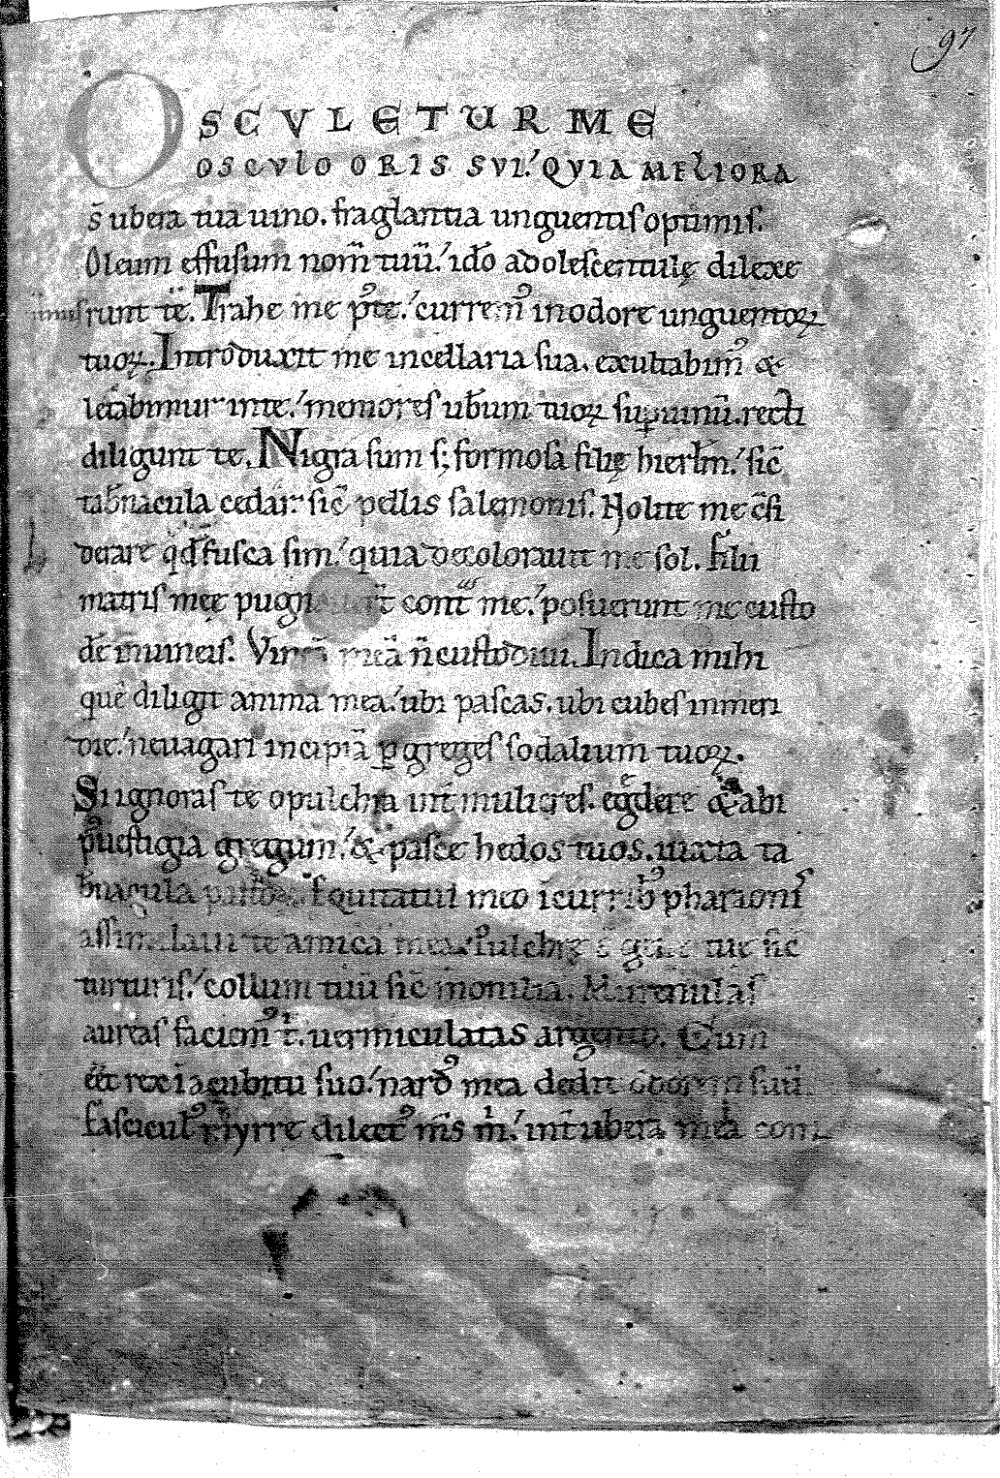 97
OSCULETUR ME
OSCULO ORIS SVI. QVIA MELIORA
s̄ ubera tua uino. fraglantia unguentis optimis.
Oleum effusum nom̄ tuū. ido̅ adolescentulę dilexe
runt te. Trahe me p᷒ te. curremꝰ in odore unguentoꝝ
tuoꝝ. Introduxit me in cellaria sua. exultabimꝰ &
letabimur in te. memores uberum tuoꝝ sup uinū. recti
diligunt te. Nigra sum s; formosa filię hierl̄m. sic̄
tab̄nacula cedar. sic̄ pellis salemonis. Nolite me c̄si
derare qd̄ fusca sim. quia decolorauit me sol. filii
matris meę cont̄ me. posuerunt me custo
dē in uineis. Vineā meā n̄ custodiui. Indica mihi
quē diligit anima mea. ubi pascas. ubi cubes in meri
die. ne uagari incipiā ꝑ greges sodalium tuoꝝ.
Si ignoras te o pulchra int̄ mulieres. egredere & abi
p᷒ uestigia gregum. & pasce hedos tuos. iuxta ta
b̄nacula Equitatui meo ī currib᷒ pharaonis
assimilaui te amica mea. Pulchrę tue sic̄
turturis. collum tuū sic̄ monilia. Murenulas
aureas faciemꝰ t̄. uermiculatas argento. Cum
eēt rex ī acubitu suo. nardꝰ mea dedit odorem suū.
Fasciculꝰ myrre dilectꝰ m̄s m̄. int̄ ubera mea com